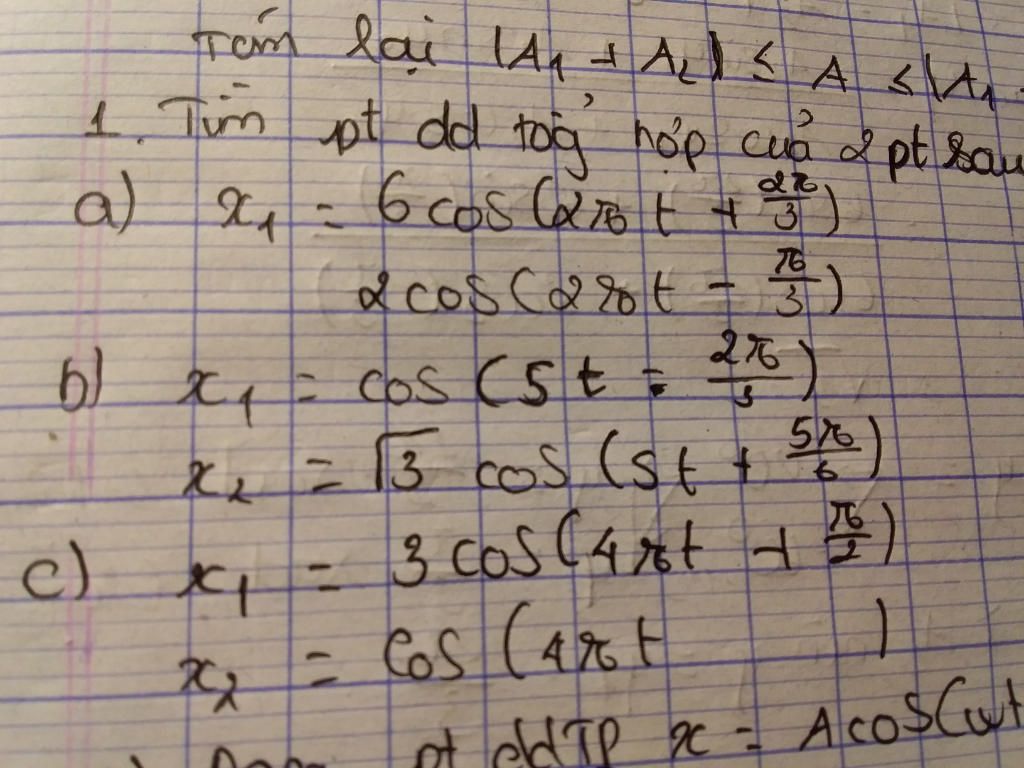 Tóm lại |A₁ + A₂| ≤ A ≤ |A₁
1. Tìm pt dd tổg hợp của 2 pt sau
a) x₁ = 6 cos(2πt + 2π/3)
2 cos(2πt - π/3)
b) x₁ = cos(5t = 2π/3)
x₂ = √3 cos(5t + 5π/6)
c) x₁ = 3 cos(4πt + π/2)
x₂ = cos(4πt )
pt ddTP x = Acos(ωt